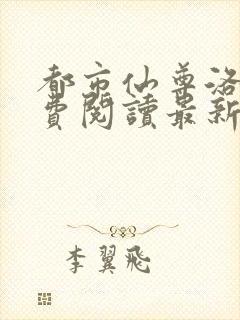 都市仙尊洛
費閱讀最新
李翼飛